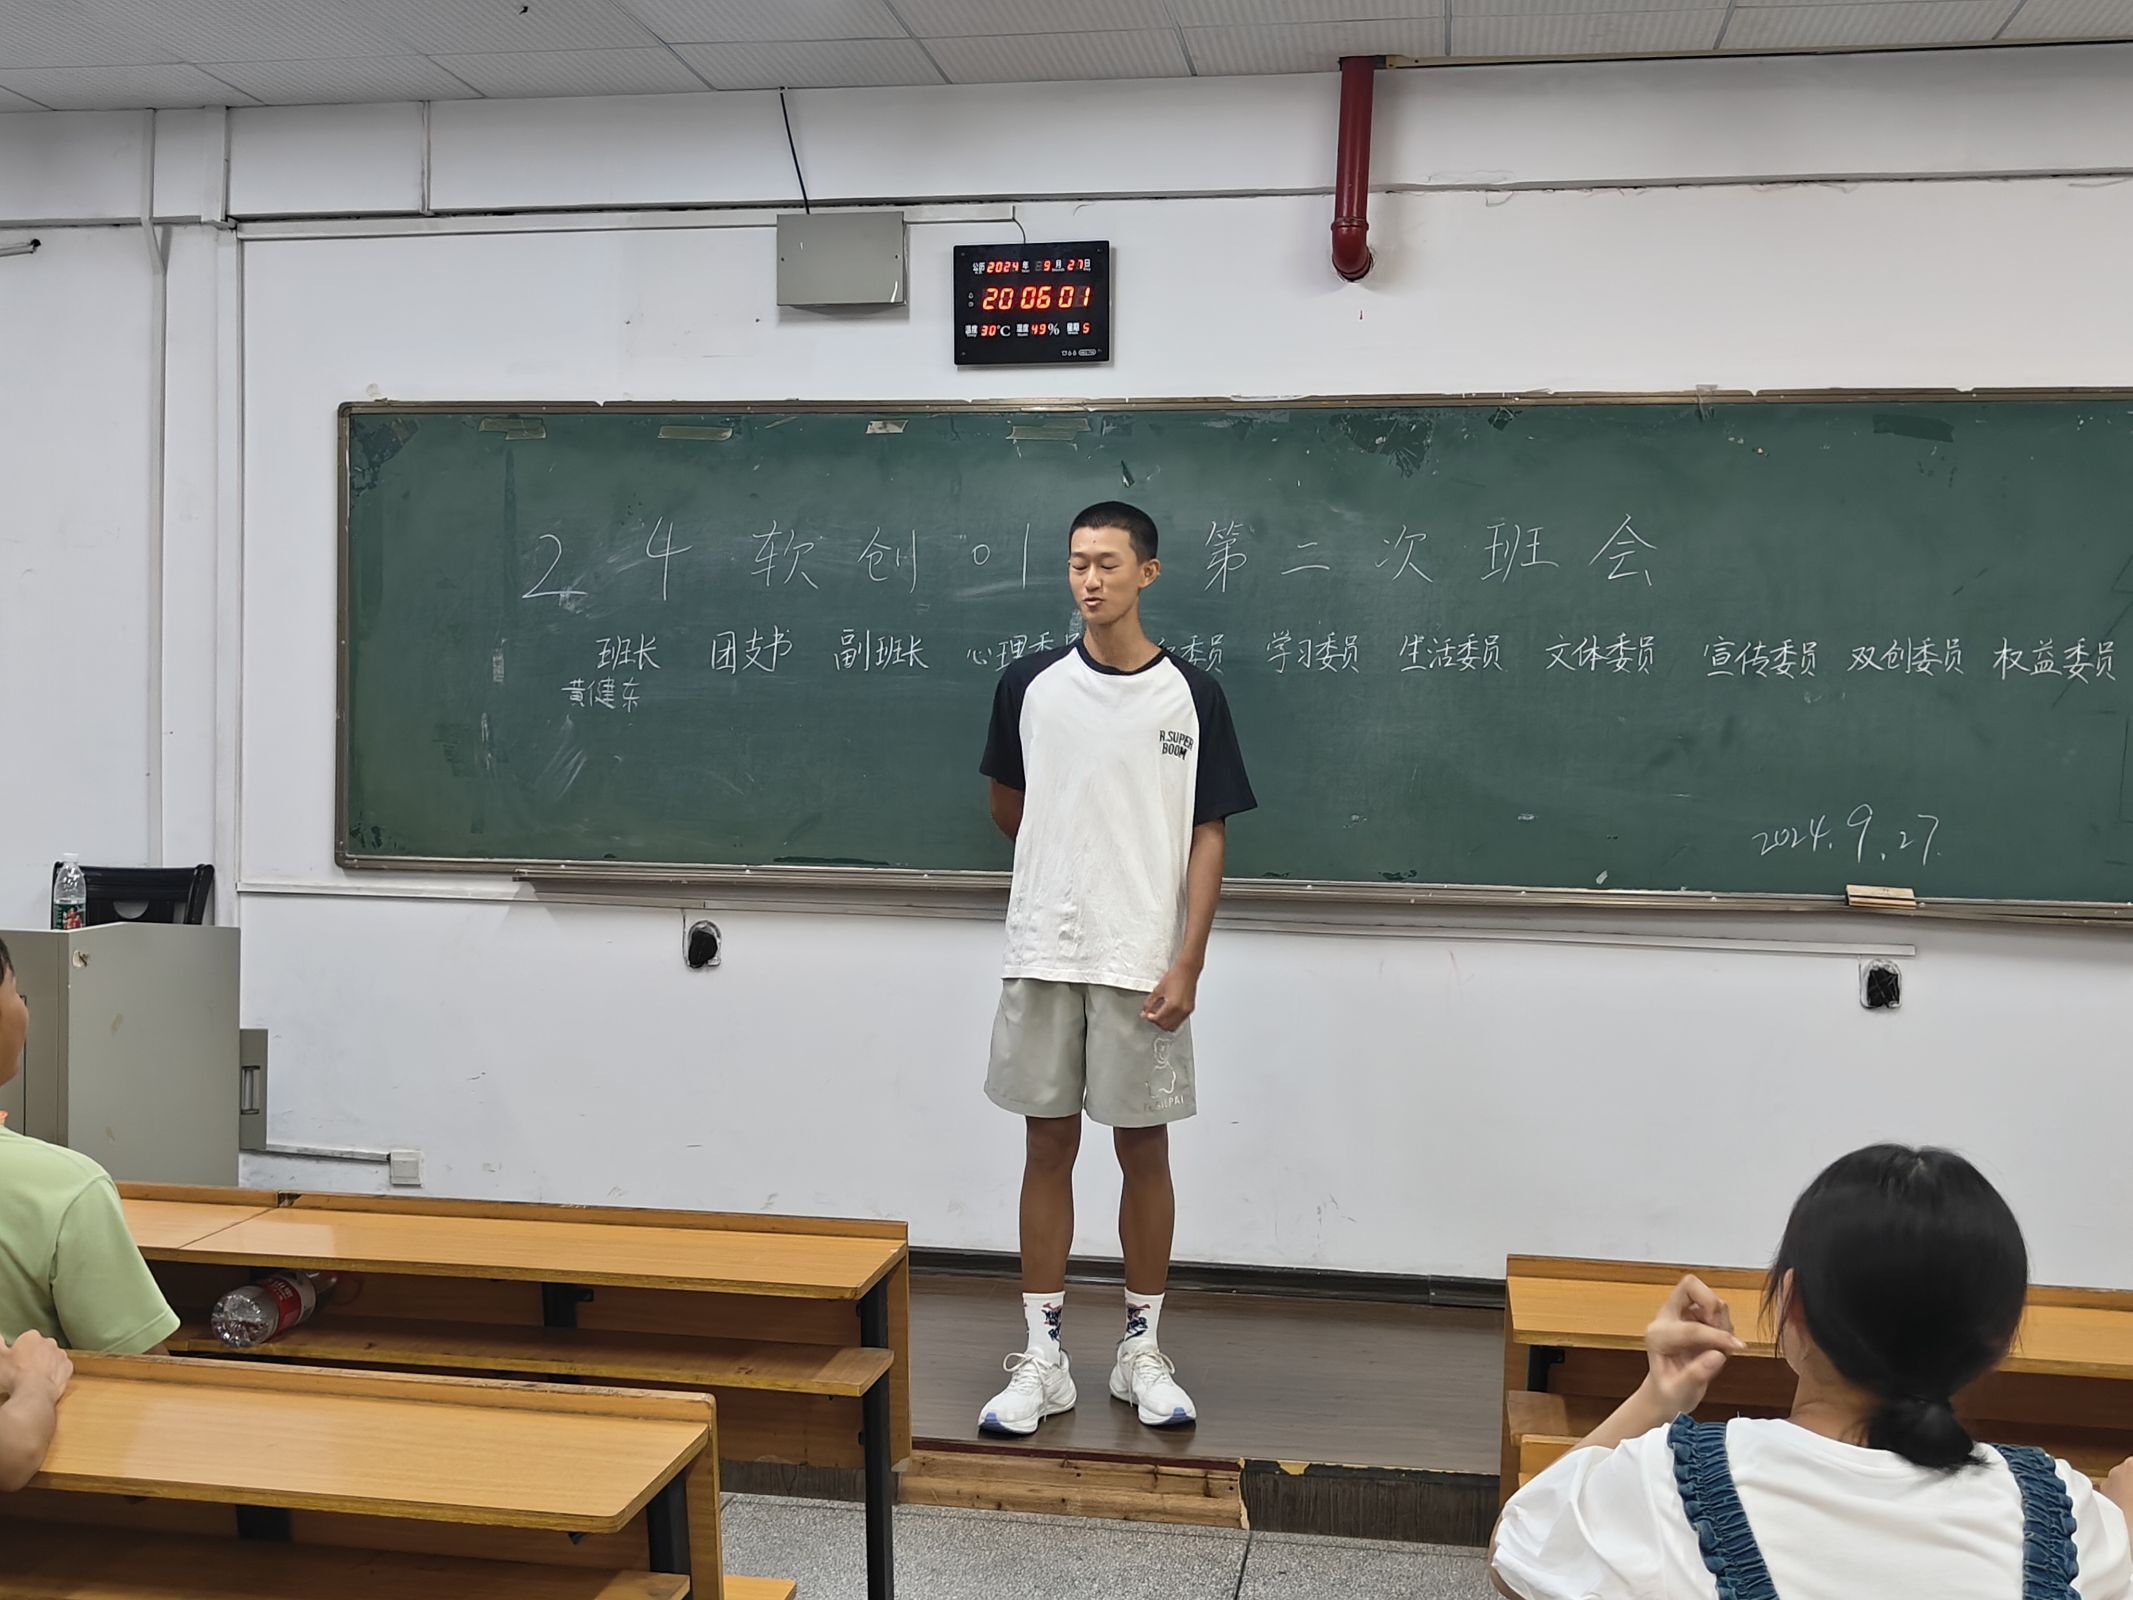 公历 2024 年 9 月 27 日
20 06 01
温度 30℃ 湿度 49% 星期 5
24 软创 01 第二次班会
班长 团支书 副班长 心理委员 委员 学习委员 生活委员 文体委员 宣传委员 双创委员 权益委员
黄健东
2024.9.27.
R.SUPER
BOOM